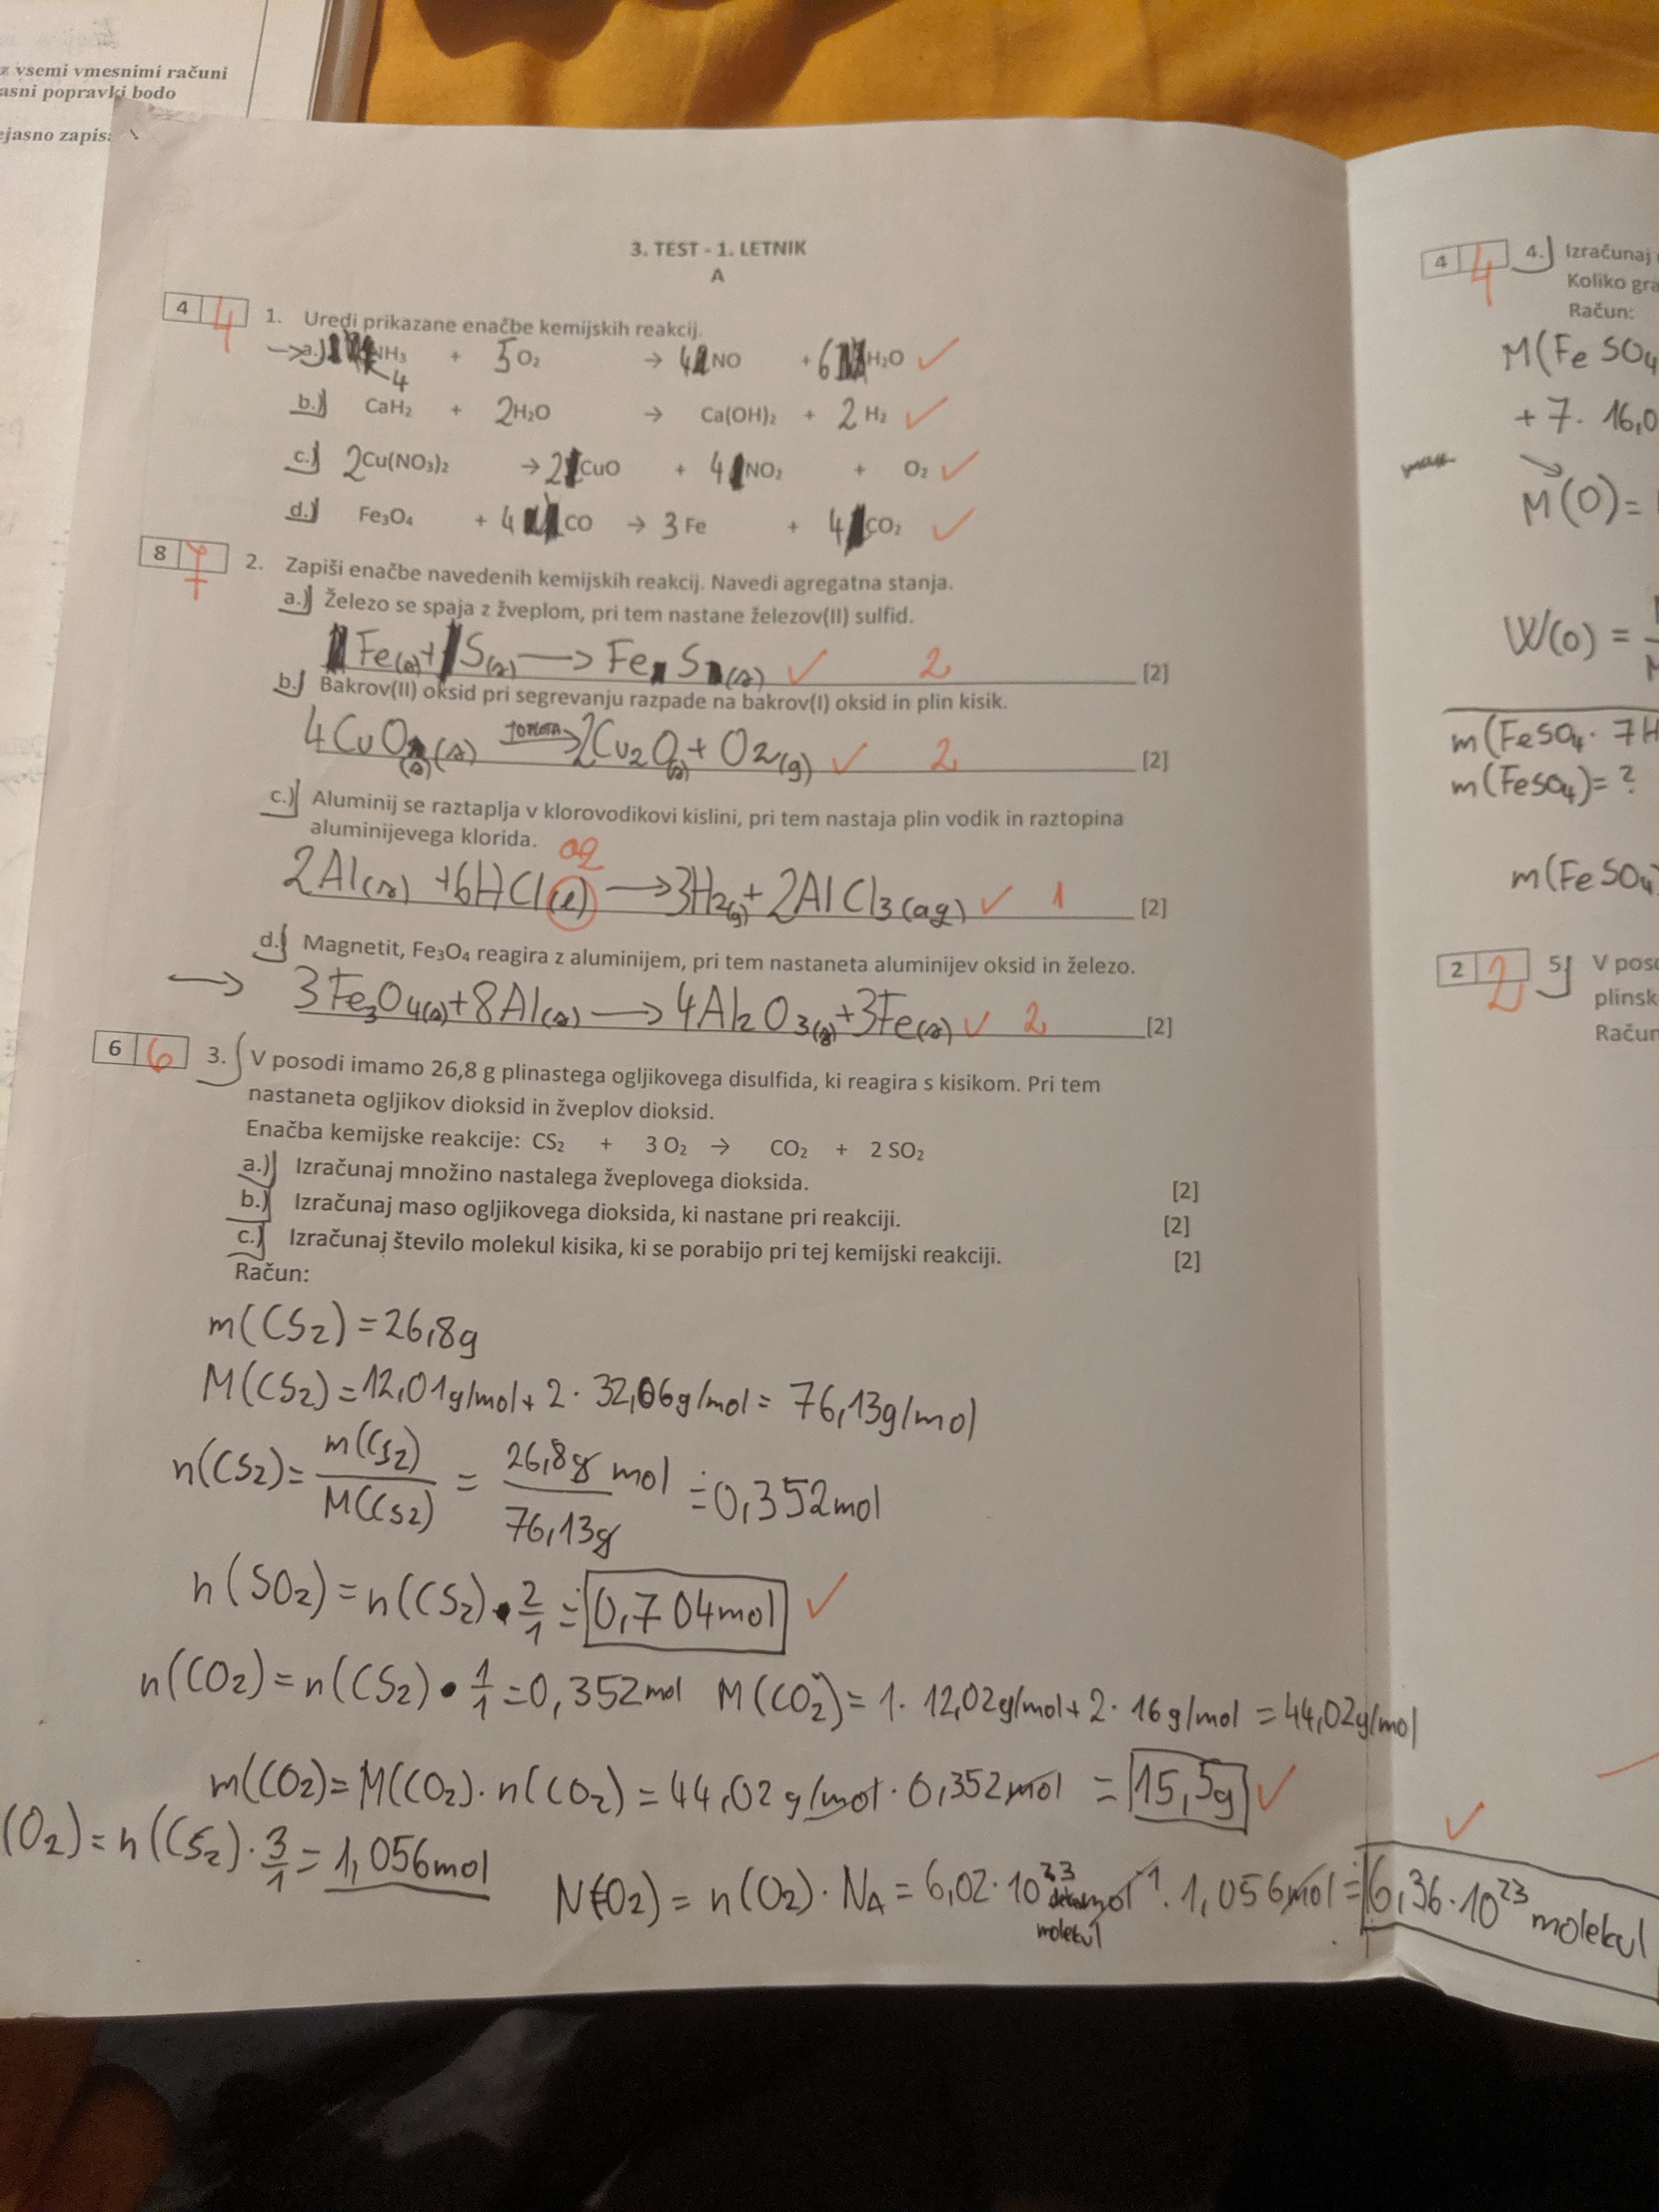 z vsemi vmesnimi računi
asni popravki bodo
ejasno zapis
3. TEST - 1. LETNIK
A
4 4 1. Uredi prikazane enačbe kemijskih reakcij.
→ a.) 4 NH₃ + 5 O₂ → 4 NO + 6 H₂O ✓
b.) CaH₂ + 2 H₂O → Ca(OH)₂ + 2 H₂ ✓
c.) 2 Cu(NO₃)₂ → 2 CuO + 4 NO₂ + O₂ ✓
d.) Fe₃O₄ + 4 CO → 3 Fe + 4 CO₂ ✓
8 7 2. Zapiši enačbe navedenih kemijskih reakcij. Navedi agregatna stanja.
a.) Železo se spaja z žveplom, pri tem nastane železov(II) sulfid.
Fe(s) + S(s) → FeS(s) ✓ 2 [2]
b.) Bakrov(II) oksid pri segrevanju razpade na bakrov(I) oksid in plin kisik.
4CuO(s) TOPLOTA → 2Cu₂O(s) + O₂(g) ✓ 2 [2]
c.) Aluminij se raztaplja v klorovodikovi kislini, pri tem nastaja plin vodik in raztopina
aluminijevega klorida.
aq
2Al(s) + 6HCl(l) → 3H₂(g) + 2AlCl₃(aq) ✓ 1 [2]
d.) Magnetit, Fe₃O₄ reagira z aluminijem, pri tem nastaneta aluminijev oksid in železo.
→ 3Fe₃O₄(s) + 8Al(s) → 4Al₂O₃(s) + 3Fe(s) ✓ 2 [2]
6 6 3. V posodi imamo 26,8 g plinastega ogljikovega disulfida, ki reagira s kisikom. Pri tem
nastaneta ogljikov dioksid in žveplov dioksid.
Enačba kemijske reakcije: CS₂ + 3 O₂ → CO₂ + 2 SO₂
a.) Izračunaj množino nastalega žveplovega dioksida. [2]
b.) Izračunaj maso ogljikovega dioksida, ki nastane pri reakciji. [2]
c.) Izračunaj število molekul kisika, ki se porabijo pri tej kemijski reakciji. [2]
Račun:
m(CS₂) = 26,8g
M(CS₂) = 12,01g/mol + 2 · 32,06g/mol = 76,13g/mol
n(CS₂) = m(CS₂)/M(CS₂) = 26,8g mol/76,13g ≐ 0,352mol
n(SO₂) = n(CS₂) · 2/1 ≐ 0,704mol ✓
n(CO₂) = n(CS₂) · 1/1 = 0,352mol M(CO₂) = 1 · 12,02g/mol + 2 · 16g/mol = 44,02g/mol
m(CO₂) = M(CO₂) · n(CO₂) = 44,02 g/mol · 0,352mol = 15,5g ✓
(O₂) = n(CS₂) · 3/1 = 1,056mol
N(O₂) = n(O₂) · NA = 6,02 · 10²³ molekul mol⁻¹ · 1,056mol ≐ 6,36 · 10²³ molekul ✓
4 4 4.) Izračunaj
Koliko gra
Račun:
M(FeSO₄
+ 7 · 16,0
→ M(O) =
W(O) =
m(FeSO₄ · 7H
m(FeSO₄) = ?
m(FeSO₄
2 2 5.) V poso
plinsk
Račun